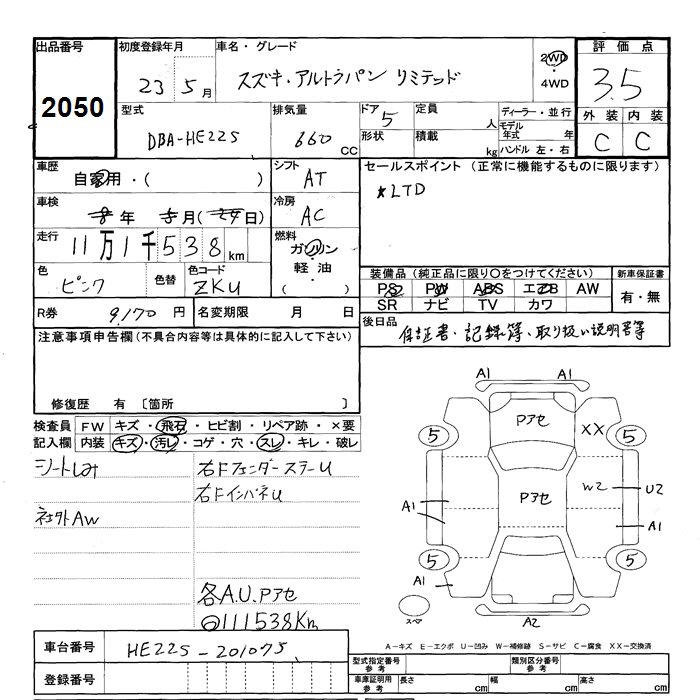 出品番号 初度登録年月 車名・グレード 評価点
2050 23 5月 スズキ・アルトラパン リミテッド 2WD ・ 4WD 3.5
型式 排気量 ドア 定員 ディーラー・並行 外装 内装
DBA-HE22S 660 CC 5 人 モデル年式 年 C C
形状 積載 kg ハンドル 左・右
車歴 シフト セールスポイント (正常に機能するものに限ります)
自家用・( ) AT *LTD
車検 冷房
8年 月(29日) AC
走行 燃料
11万1千538km ガソリン 軽油・ ( )
色 色替 色コード 装備品(純正品に限り〇をつけてください) 新車保証書
ピンク ZKU PS PW ABS エアB AW 有・無
SR ナビ TV カワ
R券 9,170円 名変期限 月 日 後日品 保証書・記録簿、取り扱い説明書等
注意事項申告欄(不具合内容等は具体的に記入して下さい)
修復歴 有 〔箇所 〕
検査員 FW キズ・飛石・ヒビ割・リペア跡・×要
記入欄 内装 キズ・汚レ・コゲ・穴・スレ・キレ・破レ
シートしみ 右FフェンダーステーU
右FインパネU
社外AW
各A.U.Pアセ
111538Km
A1 A1
Pアセ XX
5 5
W2 U2
Pアセ
A1 A1
5 5
A1
スペア A2
A-キズ E-エクボ U-凹み W-補修跡 S-サビ C-腐食 XX-交換済
車台番号 HE22S-201075
登録番号
型式指定番号 参考 類別区分番号 参考
車庫証明用 参考 長さ cm 幅 cm 高さ cm